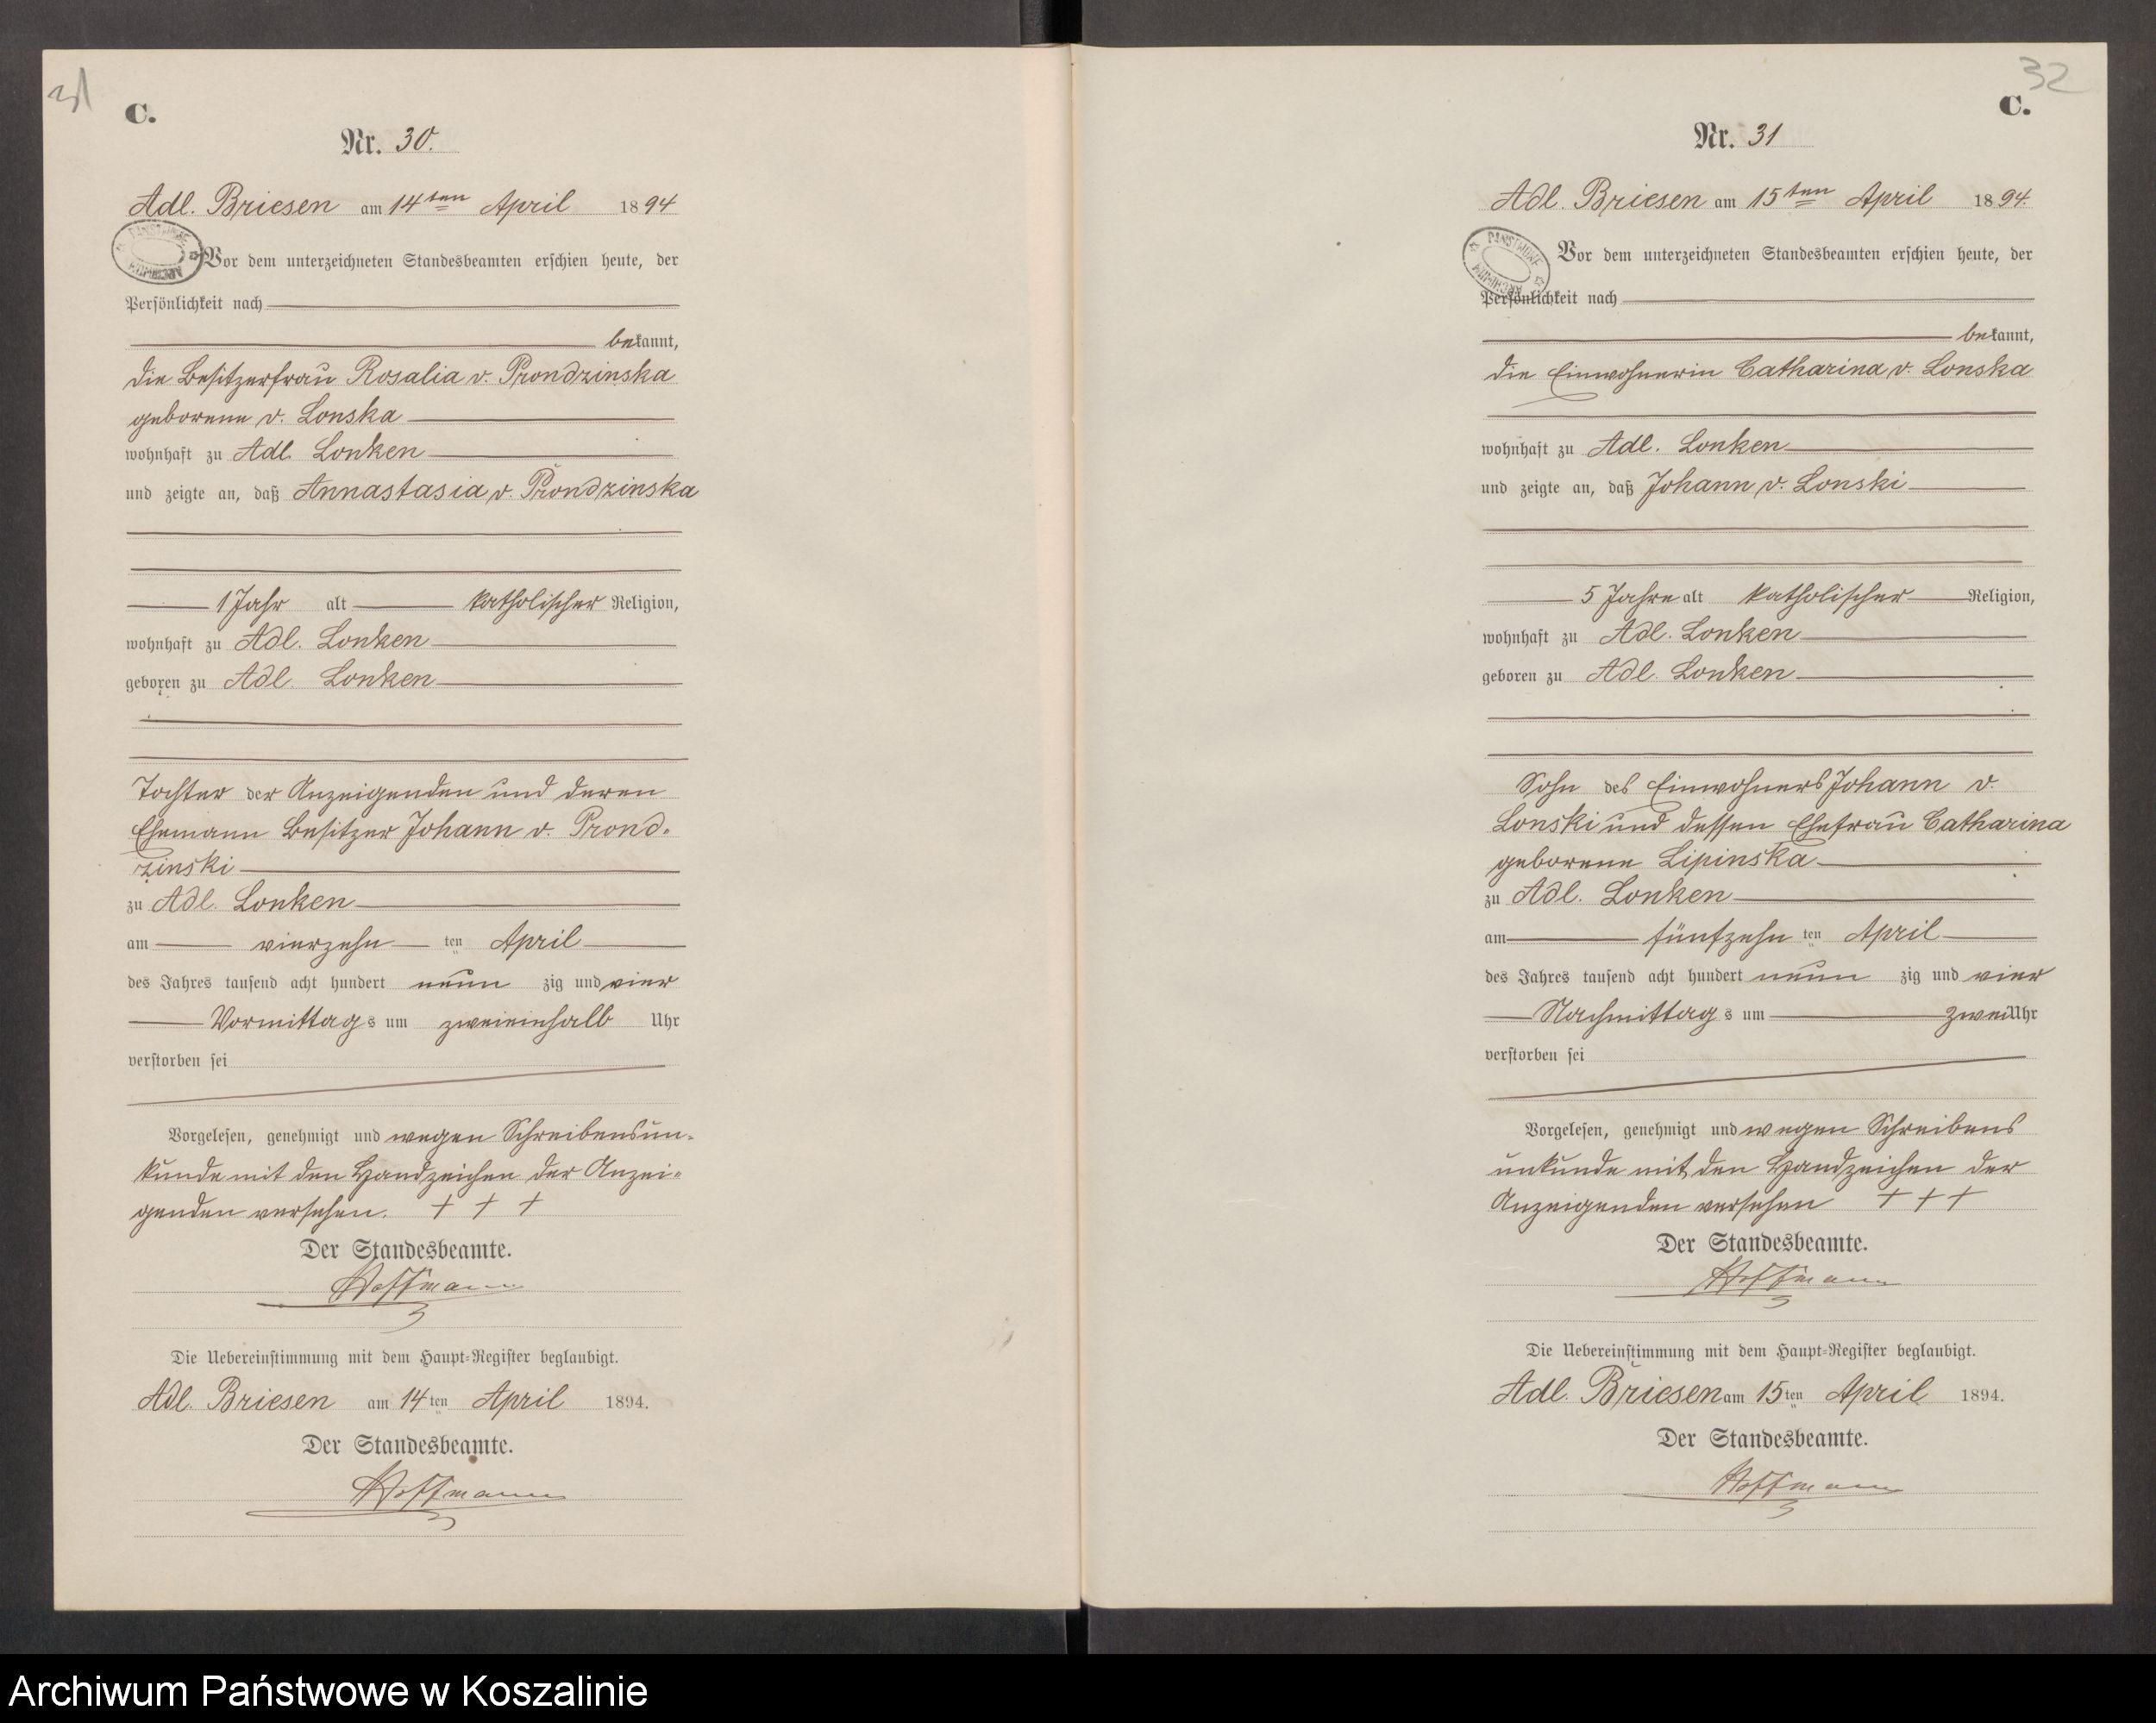 31
C.
Nr. 30.
Adl. Briesen am 14ten April 1894
PAŃSTWOWE ARCHIWUM
Vor dem unterzeichneten Standesbeamten erschien heute, der
Persönlichkeit nach
bekannt,
die Besitzerfrau Rosalia v. Prondzinska
geborene v. Lonska
wohnhaft zu Adl. Lonken
und zeigte an, daß Annastasia v. Prondzinska
1 Jahr alt katholischer Religion,
wohnhaft zu Adl. Lonken
geboren zu Adl. Lonken
Tochter der Anzeigenden und deren
Ehemann Besitzer Johann v. Prond-
zinski
zu Adl. Lonken
am vierzehn ten April
des Jahres tausend acht hundert neun zig und vier
Vormittags um zweieinhalb Uhr
verstorben sei
Vorgelesen, genehmigt und wegen Schreibensun-
kunde mit den Handzeichen der Anzei-
genden versehen. + + +
Der Standesbeamte.
Hoffmann
Die Uebereinstimmung mit dem Haupt-Register beglaubigt.
Adl. Briesen am 14ten April 1894.
Der Standesbeamte.
Hoffmann
32
C.
Nr. 31
Adl. Briesen am 15ten April 1894.
PAŃSTWOWE ARCHIWUM
Vor dem unterzeichneten Standesbeamten erschien heute, der
Persönlichkeit nach
bekannt,
die Einwohnerin Catharina v. Lonska
wohnhaft zu Adl. Lonken
und zeigte an, daß Johann v. Lonski
5 Jahre alt katholischer Religion,
wohnhaft zu Adl. Lonken
geboren zu Adl. Lonken
Sohn des Einwohners Johann v.
Lonski und dessen Ehefrau Catharina
geborene Lipinska
zu Adl. Lonken
am fünfzehn ten April
des Jahres tausend acht hundert neun zig und vier
Nachmittags um zwei Uhr
verstorben sei
Vorgelesen, genehmigt und wegen Schreibens
unkunde mit den Handzeichen der
Anzeigenden versehen + + +
Der Standesbeamte.
Hoffmann
Die Uebereinstimmung mit dem Haupt-Register beglaubigt.
Adl. Briesen am 15ten April 1894.
Der Standesbeamte.
Hoffmann
Archiwum Państwowe w Koszalinie